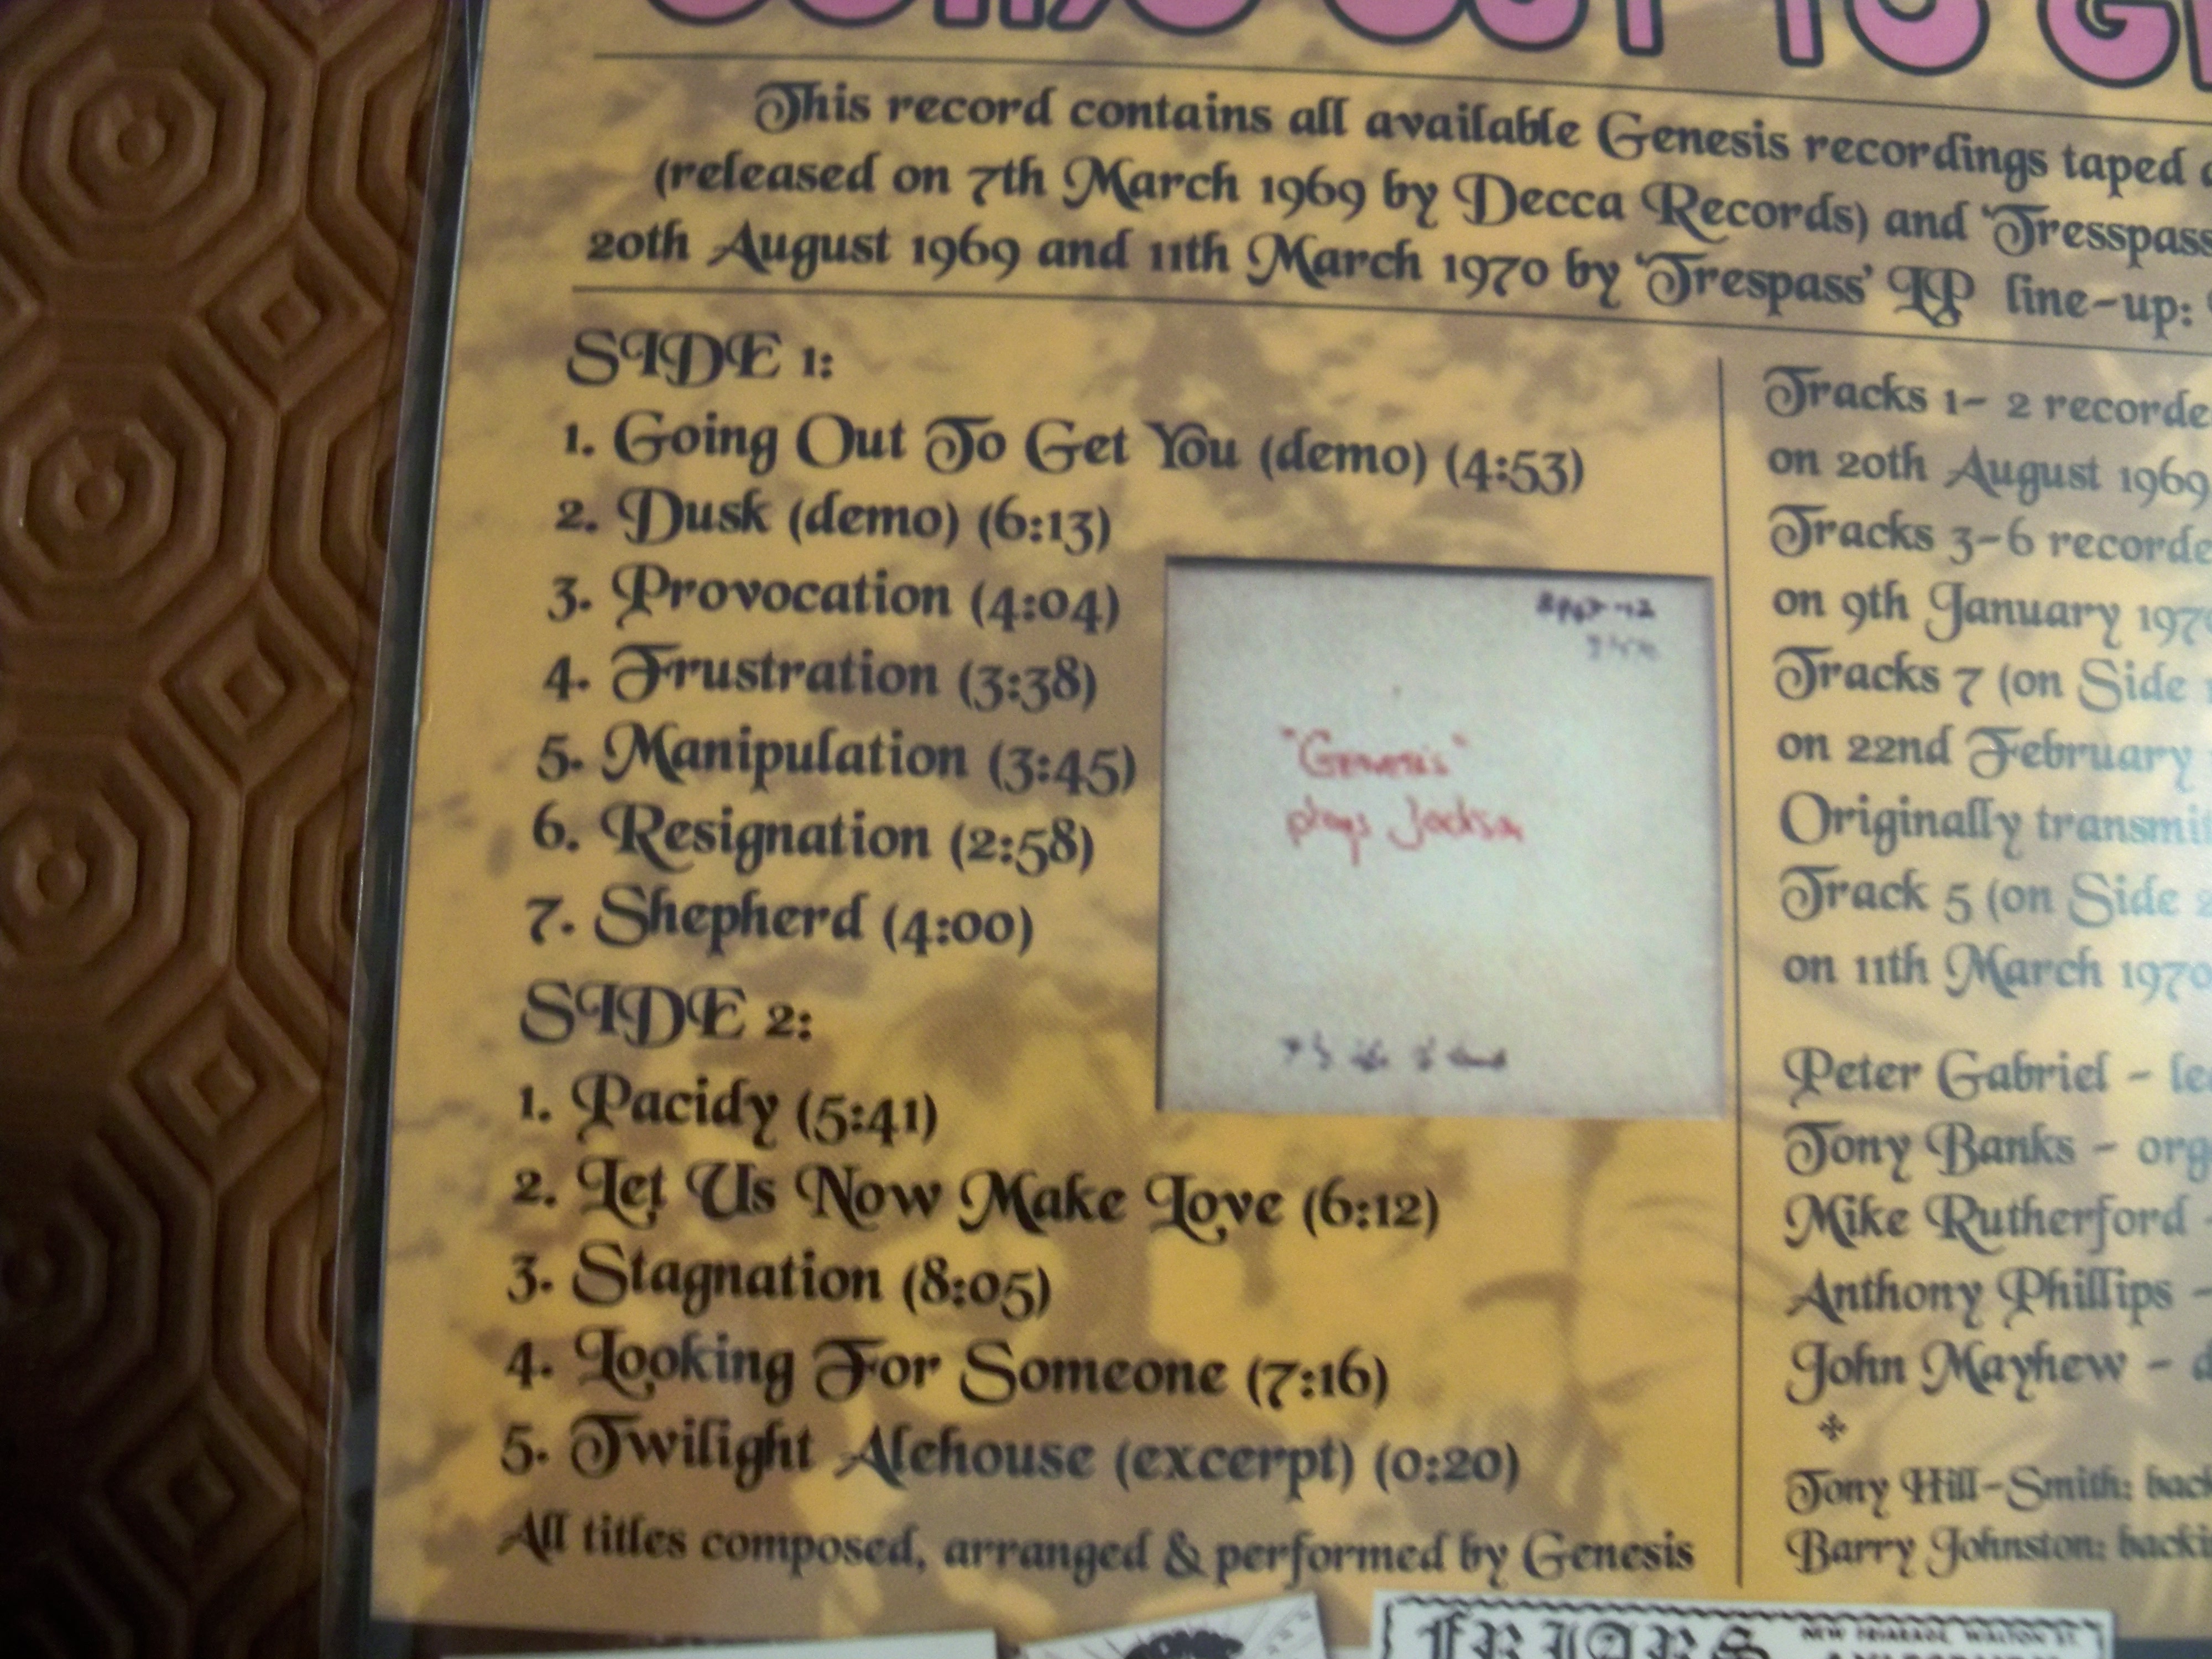 GOING OUT TO GE
This record contains all available Genesis recordings taped
(released on 7th March 1969 by Decca Records) and 'Tresspass
20th August 1969 and 11th March 1970 by 'Trespass' LP line-up:
SIDE 1:
1. Going Out To Get You (demo) (4:53)
2. Dusk (demo) (6:13)
3. Provocation (4:04)
4. Frustration (3:38)
5. Manipulation (3:45)
6. Resignation (2:58)
7. Shepherd (4:00)
SIDE 2:
1. Pacidy (5:41)
2. Let Us Now Make Love (6:12)
3. Stagnation (8:05)
4. Looking For Someone (7:16)
5. Twilight Alehouse (excerpt) (0:20)
All titles composed, arranged & performed by Genesis
"Genesis"
plays Jackson
Tracks 1- 2 recorde
on 20th August 1969
Tracks 3-6 recorde
on 9th January 197
Tracks 7 (on Side
on 22nd February
Originally transmi
Track 5 (on Side
on 11th March 1970
Peter Gabriel - le
Tony Banks - org
Mike Rutherford -
Anthony Phillips -
John Mayhew - d
Tony Hill-Smith: back
Barry Johnston: backi
FRIARS
NEW FRIARAGE, WALTON ST.